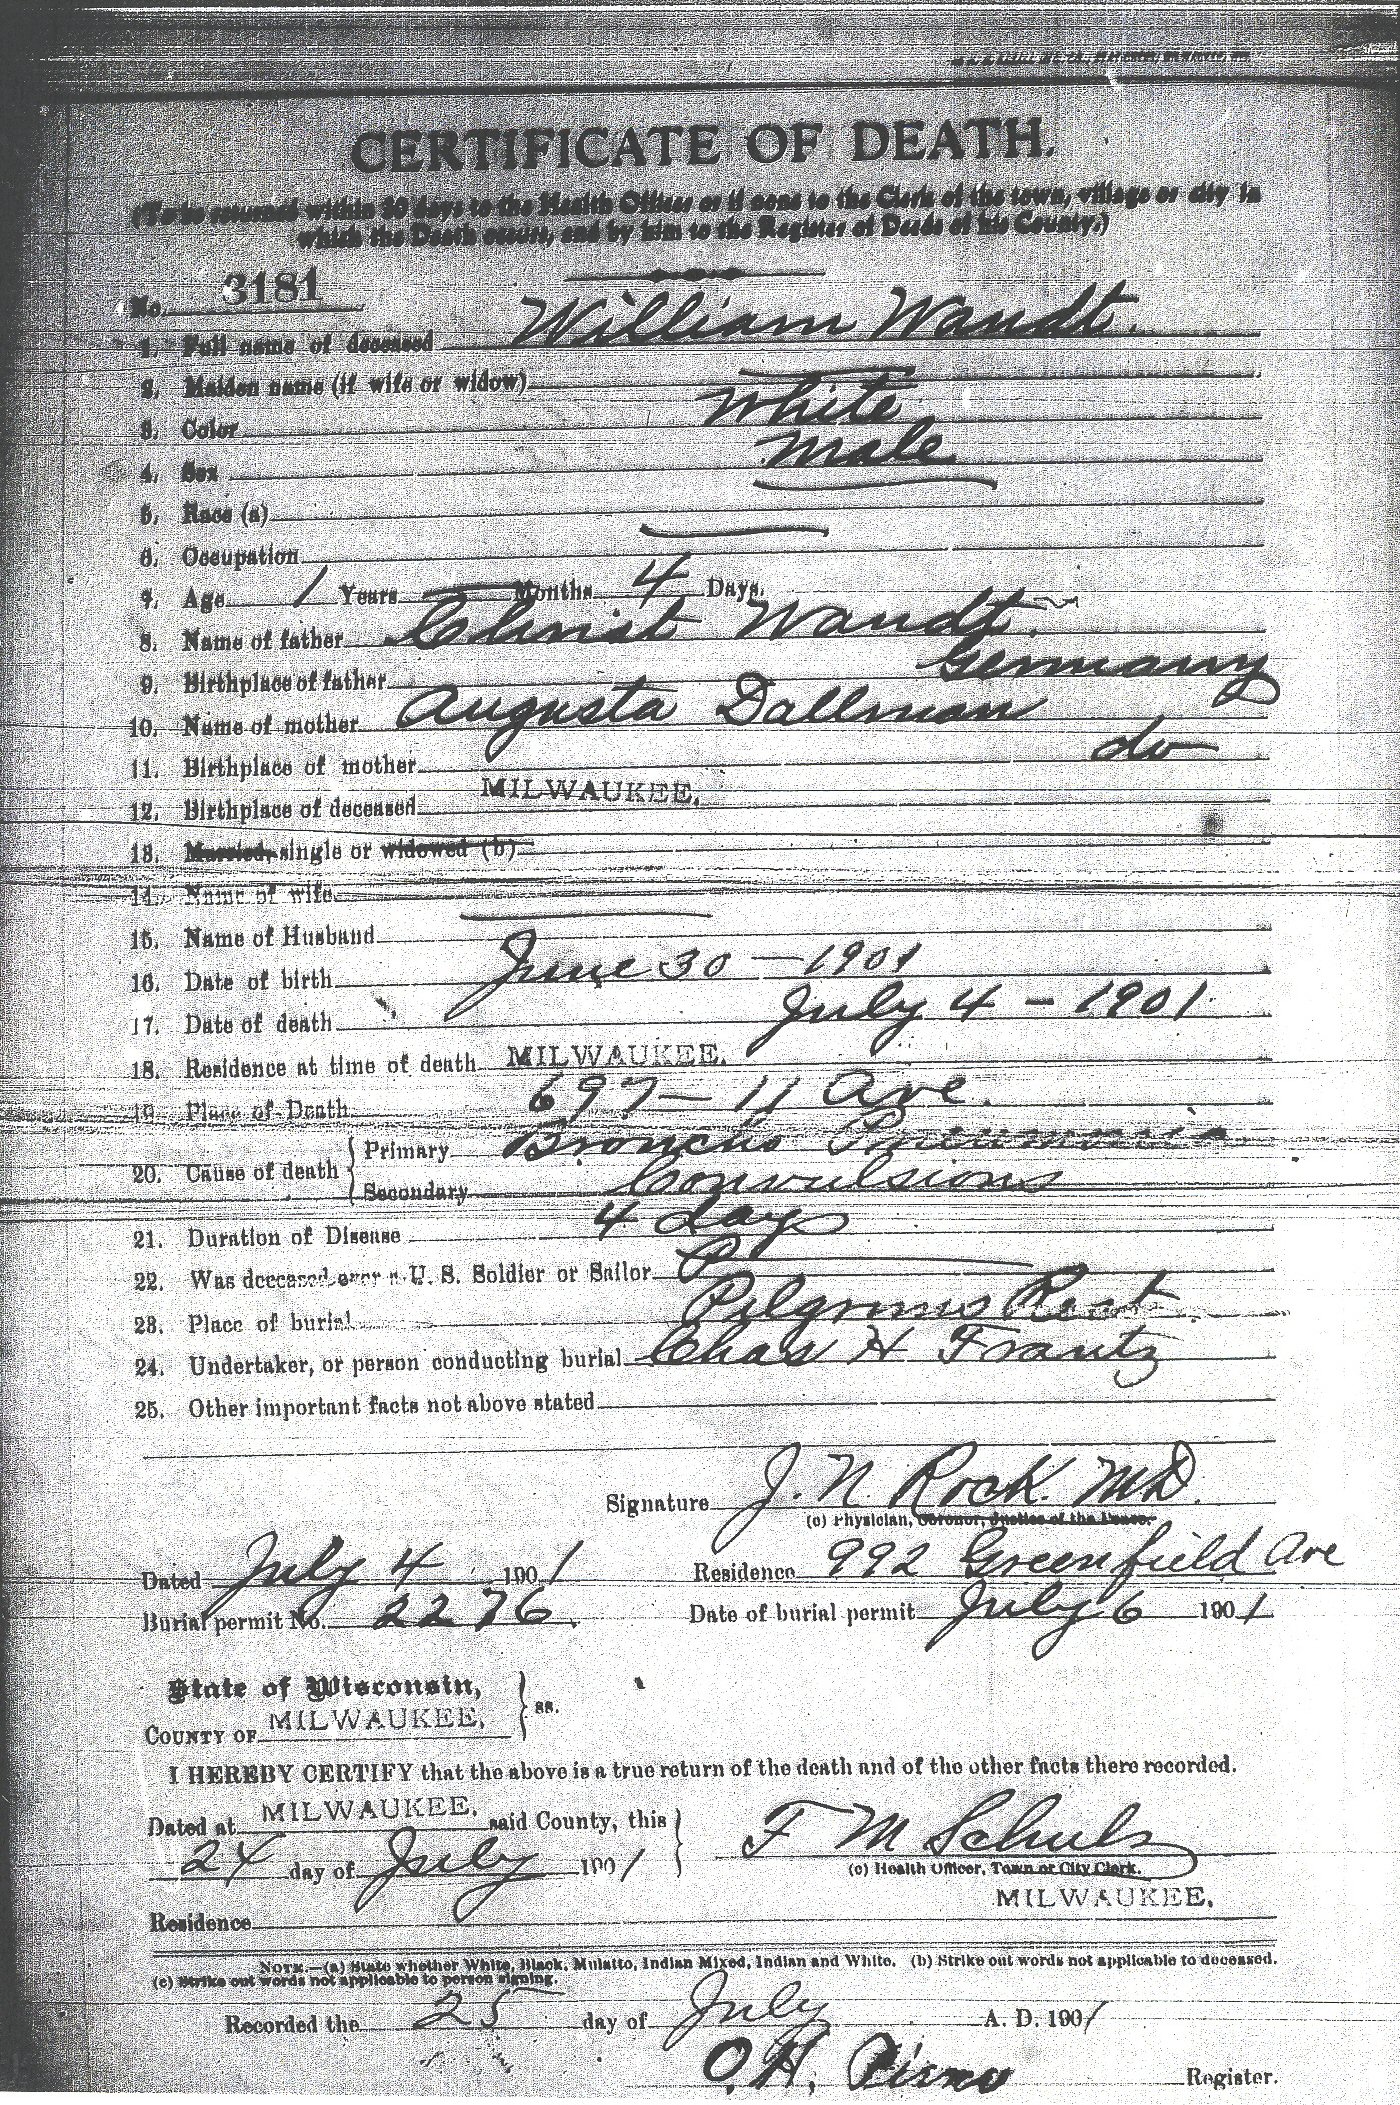 CERTIFICATE OF DEATH.
(To be returned within 30 days to the Health Officer or if none to the Clerk of the town, village or city in
which the Death occurs, and by him to the Register of Deeds of his County.)
No. 3181
1. Full name of deceased William Wandt.
2. Maiden name (if wife or widow)
3. Color White
4. Sex Male
5. Race (a)
6. Occupation
7. Age 1 Years Months 4 Days.
8. Name of father Christ Wandt.
9. Birthplace of father Germany
10. Name of mother Augusta Dallman
11. Birthplace of mother do
12. Birthplace of deceased MILWAUKEE.
13. Married, single or widowed (b)
14. Name of wife
15. Name of Husband
16. Date of birth June 30 - 1901
17. Date of death July 4 - 1901.
18. Residence at time of death MILWAUKEE.
19. Place of Death 697 - 11 Ave.
20. Cause of death { Primary Broncho Pneumonia
Secondary Convulsions
21. Duration of Disease 4 days
22. Was deceased ever a U. S. Soldier or Sailor
23. Place of burial Pilgrims Rest.
24. Undertaker, or person conducting burial Chas H Frantz
25. Other important facts not above stated
Signature J. N. Rock. MD.
(c) Physician, Coroner, Justice of the Peace.
Dated July 4 1901 Residence 992 Greenfield Ave
Burial permit No. 2276. Date of burial permit July 6 1901
State of Wisconsin, } ss.
COUNTY OF MILWAUKEE.
I HEREBY CERTIFY that the above is a true return of the death and of the other facts there recorded.
Dated at MILWAUKEE. said County, this } F M Schulz
24 day of July 1901 (c) Health Officer, Town or City Clerk.
MILWAUKEE.
Residence
NOTE.—(a) State whether White, Black, Mulatto, Indian Mixed, Indian and White. (b) Strike out words not applicable to deceased.
(c) Strike out words not applicable to person signing.
Recorded the 25 day of July A. D. 1901
O. H. Register.